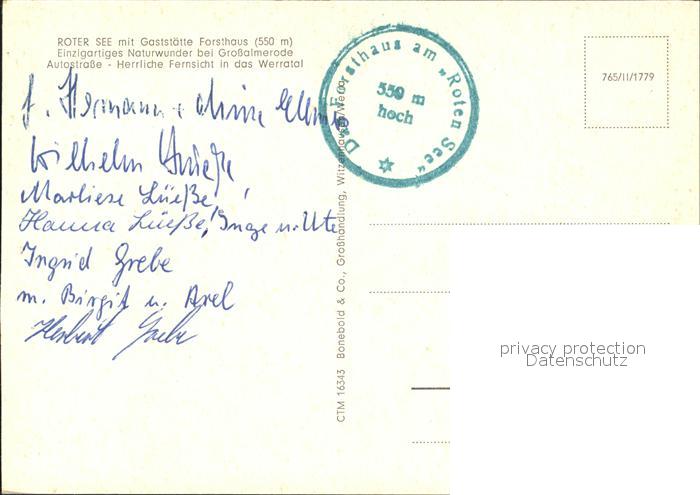 ROTER SEE mit Gaststätte Forsthaus (550 m)
Einzigartiges Naturwunder bei Großalmerode
Autostraße - Herrliche Fernsicht in das Werratal
Das Forsthaus am „Roten See“
550 m
hoch
765/II/1779
Hermann
Wilhelm
Marliese Lüeße,
Hanna Lüeße, Inge u. Ute
Ingrid Grebe
m. Birgit u. Axel
Herbert Grebe
CTM 16343 Bonebold & Co., Großhandlung, Witzenhausen/Werra
privacy protection
Datenschutz